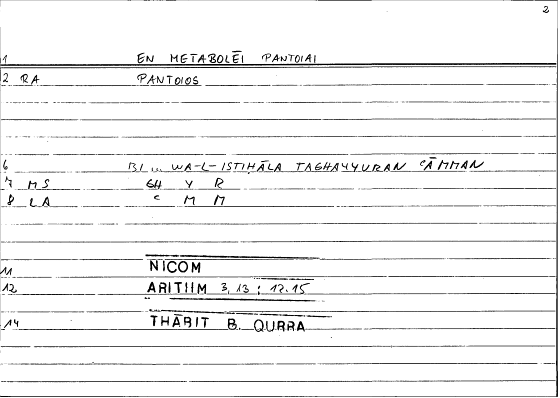 2
1 EN METABOLĒI PANTOIAI
2 RA PANTOIOS
6 BI... WA-L-ISTIḤĀLA TAGHAYYURAN ʿĀMMAN
7 MS GH Y R
8 LA ʿ M M
11 NICOM
12 ARITHM 3,13 ; 17.15
14 THĀBIT B. QURRA